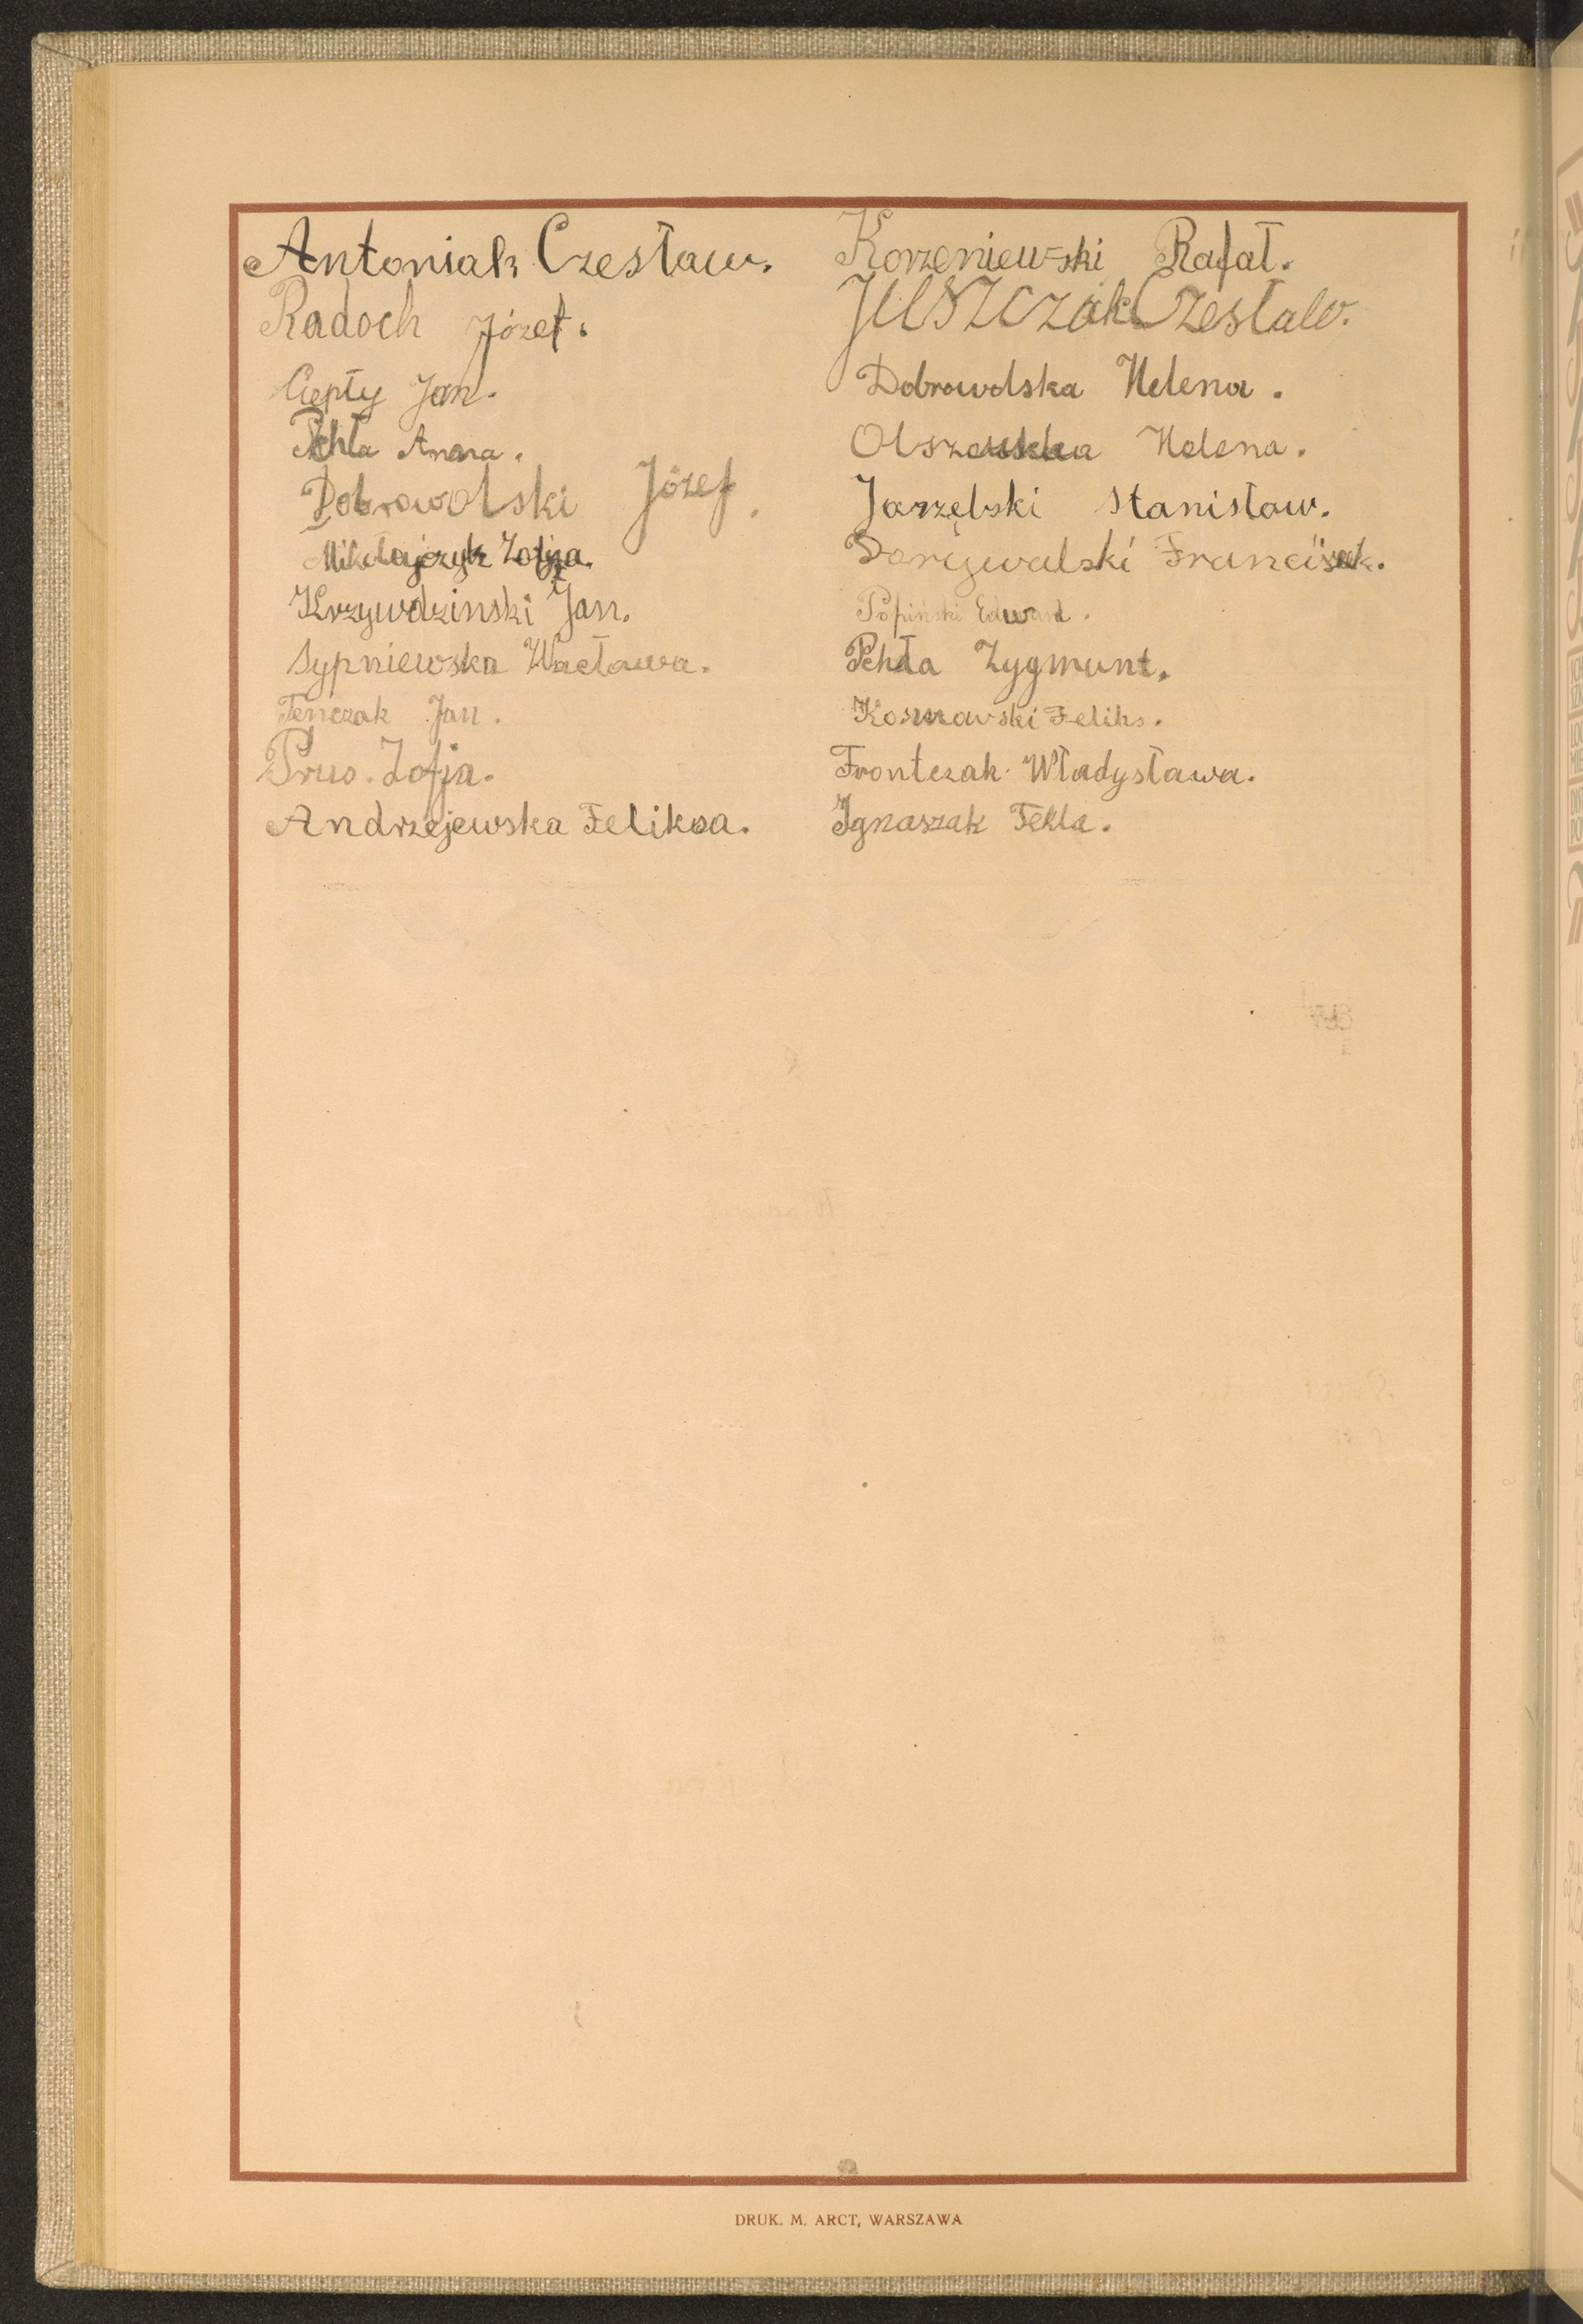 Antoniak Czesław.
Radoch Józef.
Ciepły Jan.
Pchła Anna.
Dobrowolski Józef.
Mikołajczyk Zofja.
Krzywdzinski Jan.
Sypniewska Wacława.
Tenczak Jan.
Prus. Zofja.
Andrzejewska Feliksa.
Korzeniewski Rafał.
Juszczak Czesław.
Dobrowolska Helena.
Olszewska Helena.
Jarzębski Stanisław.
Franciszek.
Popiński Edward.
Pchła Zygmunt.
Feliks.
Frontczak Władysława.
Ignaszak Tekla.
DRUK. M. ARCT, WARSZAWA